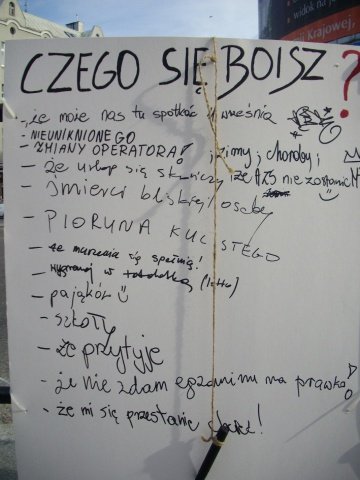 widok na
Armii Krajowej,
CZEGO SIĘ BOISZ ?
- że może nas tu spotkać 1 września
- NIEUNIKNIONEGO
- ZMIANY OPERATORA! zimy; choroby i
- że urlop się skończy że AZS nie zostanie M
- śmierci bliskiej osoby
- PIORUNA KULISTEGO
- że marzenia się spełnią!
- wygranej w (lotto)
- pająków
- szkoły
- że przytyje
- że nie zdam egzaminu na prawko!
- że mi się przestanie !